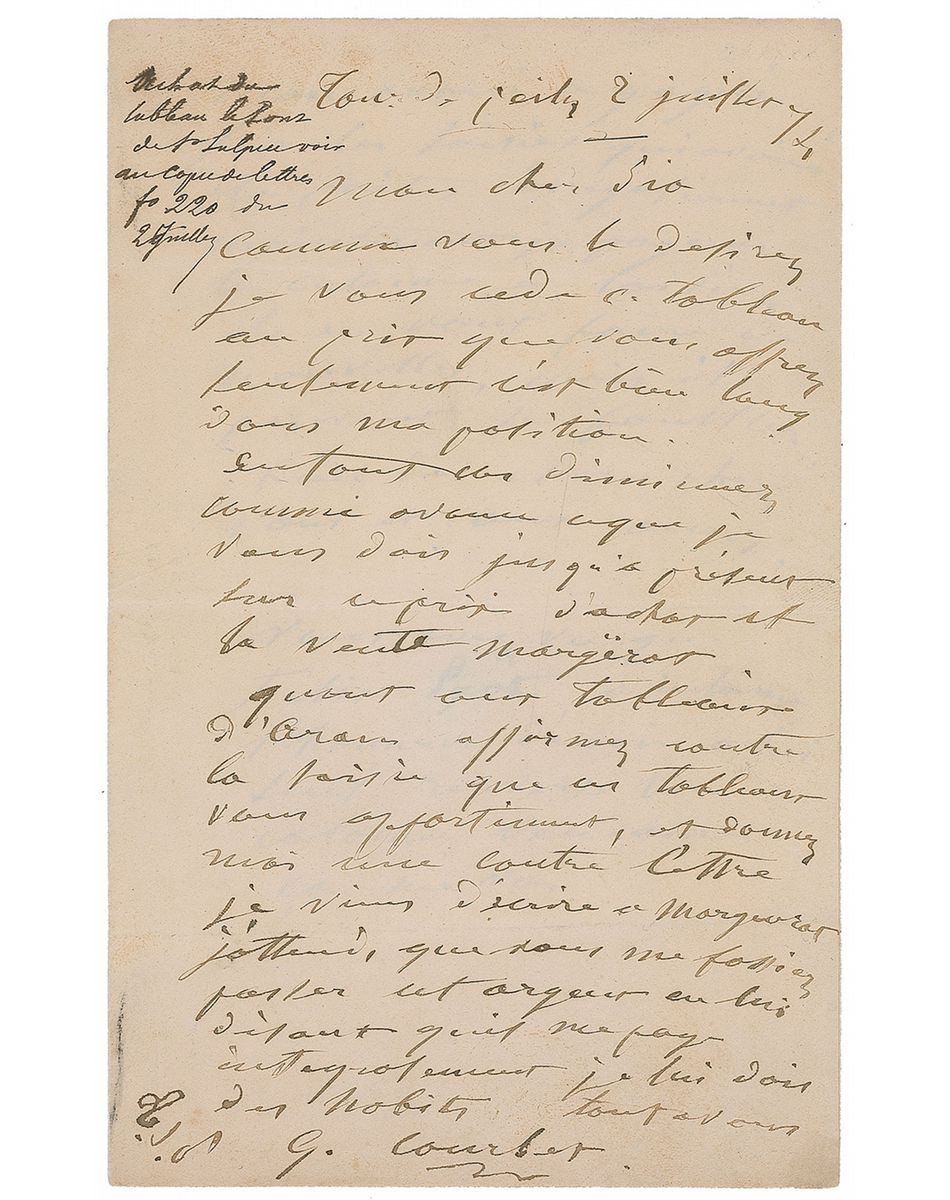 Achat du
tableau le Pont
de St Sulpice voir
au Copie de lettres
fo 220 du
2 Juillet
Tour de peilz 2 juillet 74
Mon cher Bro
Comme vous le desirez
je vous cede ce tableau
au prix que vous offrez
seulement c'est bien long
dans ma position.
en tout cas diminuez
comme avance ce que je
vous dois jusqu'à présent
sur ce prix d'achat et
la vente Margërat
quant aux tableaux
d'Arau affirmez contre
la saisie que ces tableaux
vous appartiennent, et donnez
moi une contre lettre
je viens d'ecrire a Marguerat
j'attends que vous me fassiez
passer cet argent en lui
disant qu'il me paye
integralement je lui dois
des habits tout a vous
G. Courbet